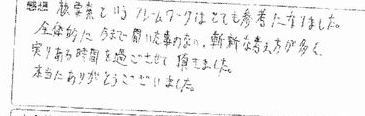 感想 敏要素というフレームワークはとても参考になりました。
全体的に今まで聞いた事のない、斬新な考え方が多く、
実りある時間を過ごさせて頂きました。
本当にありがとうございました。